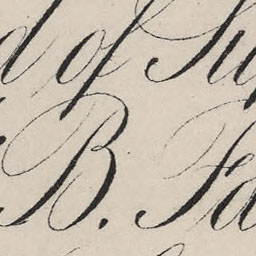 d of Su
B. Fa